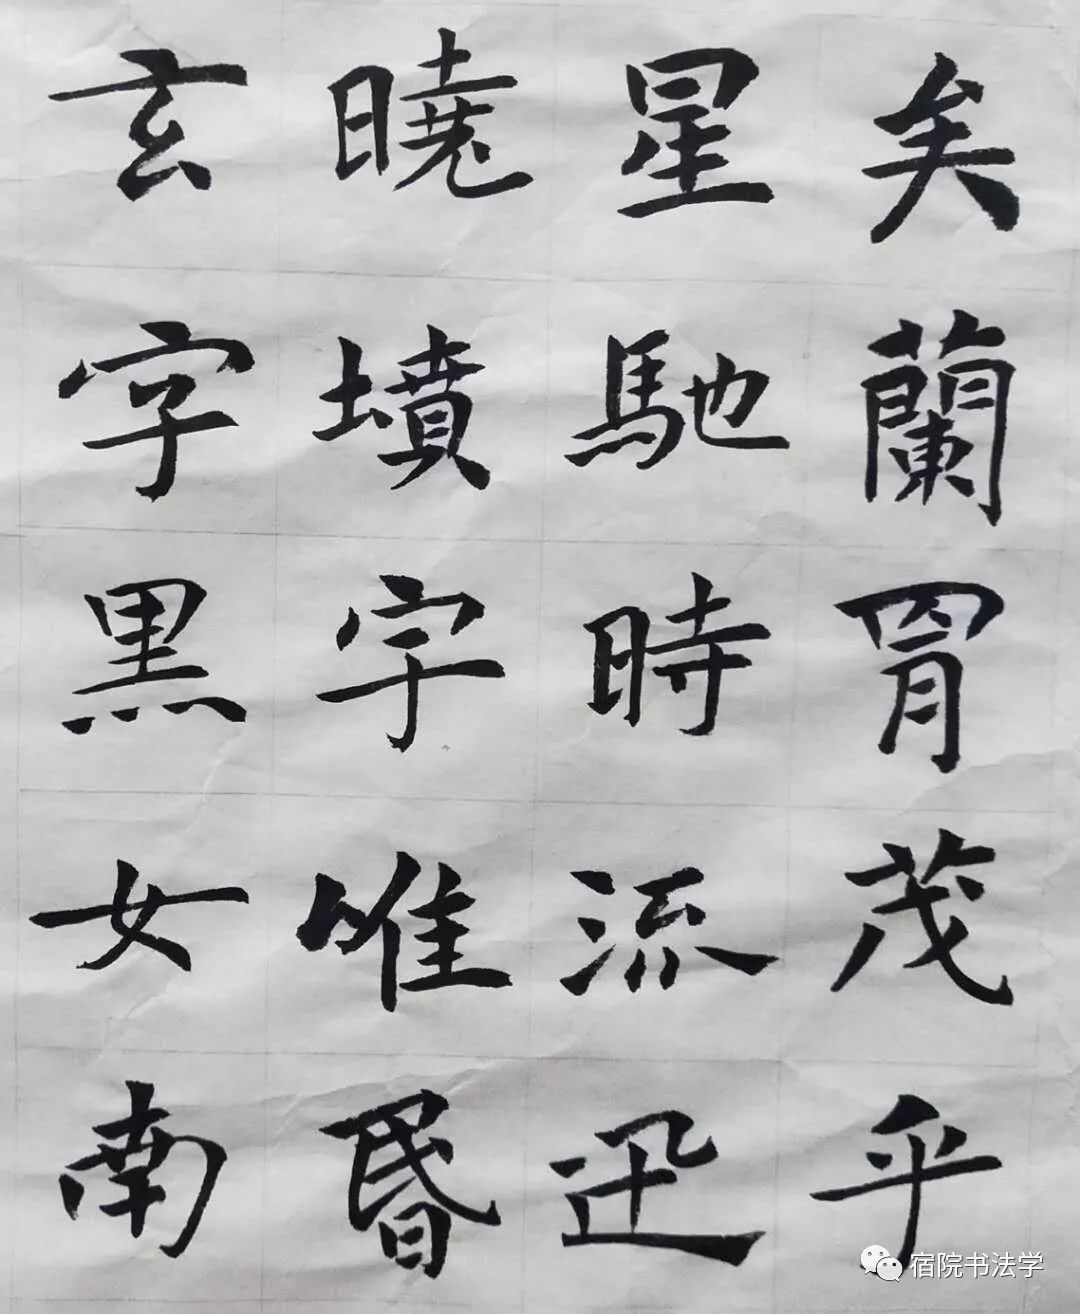 矣蘭茂乎
星馳時流迅
曉墳字唯昬
玄字黑女南
宿院书法学